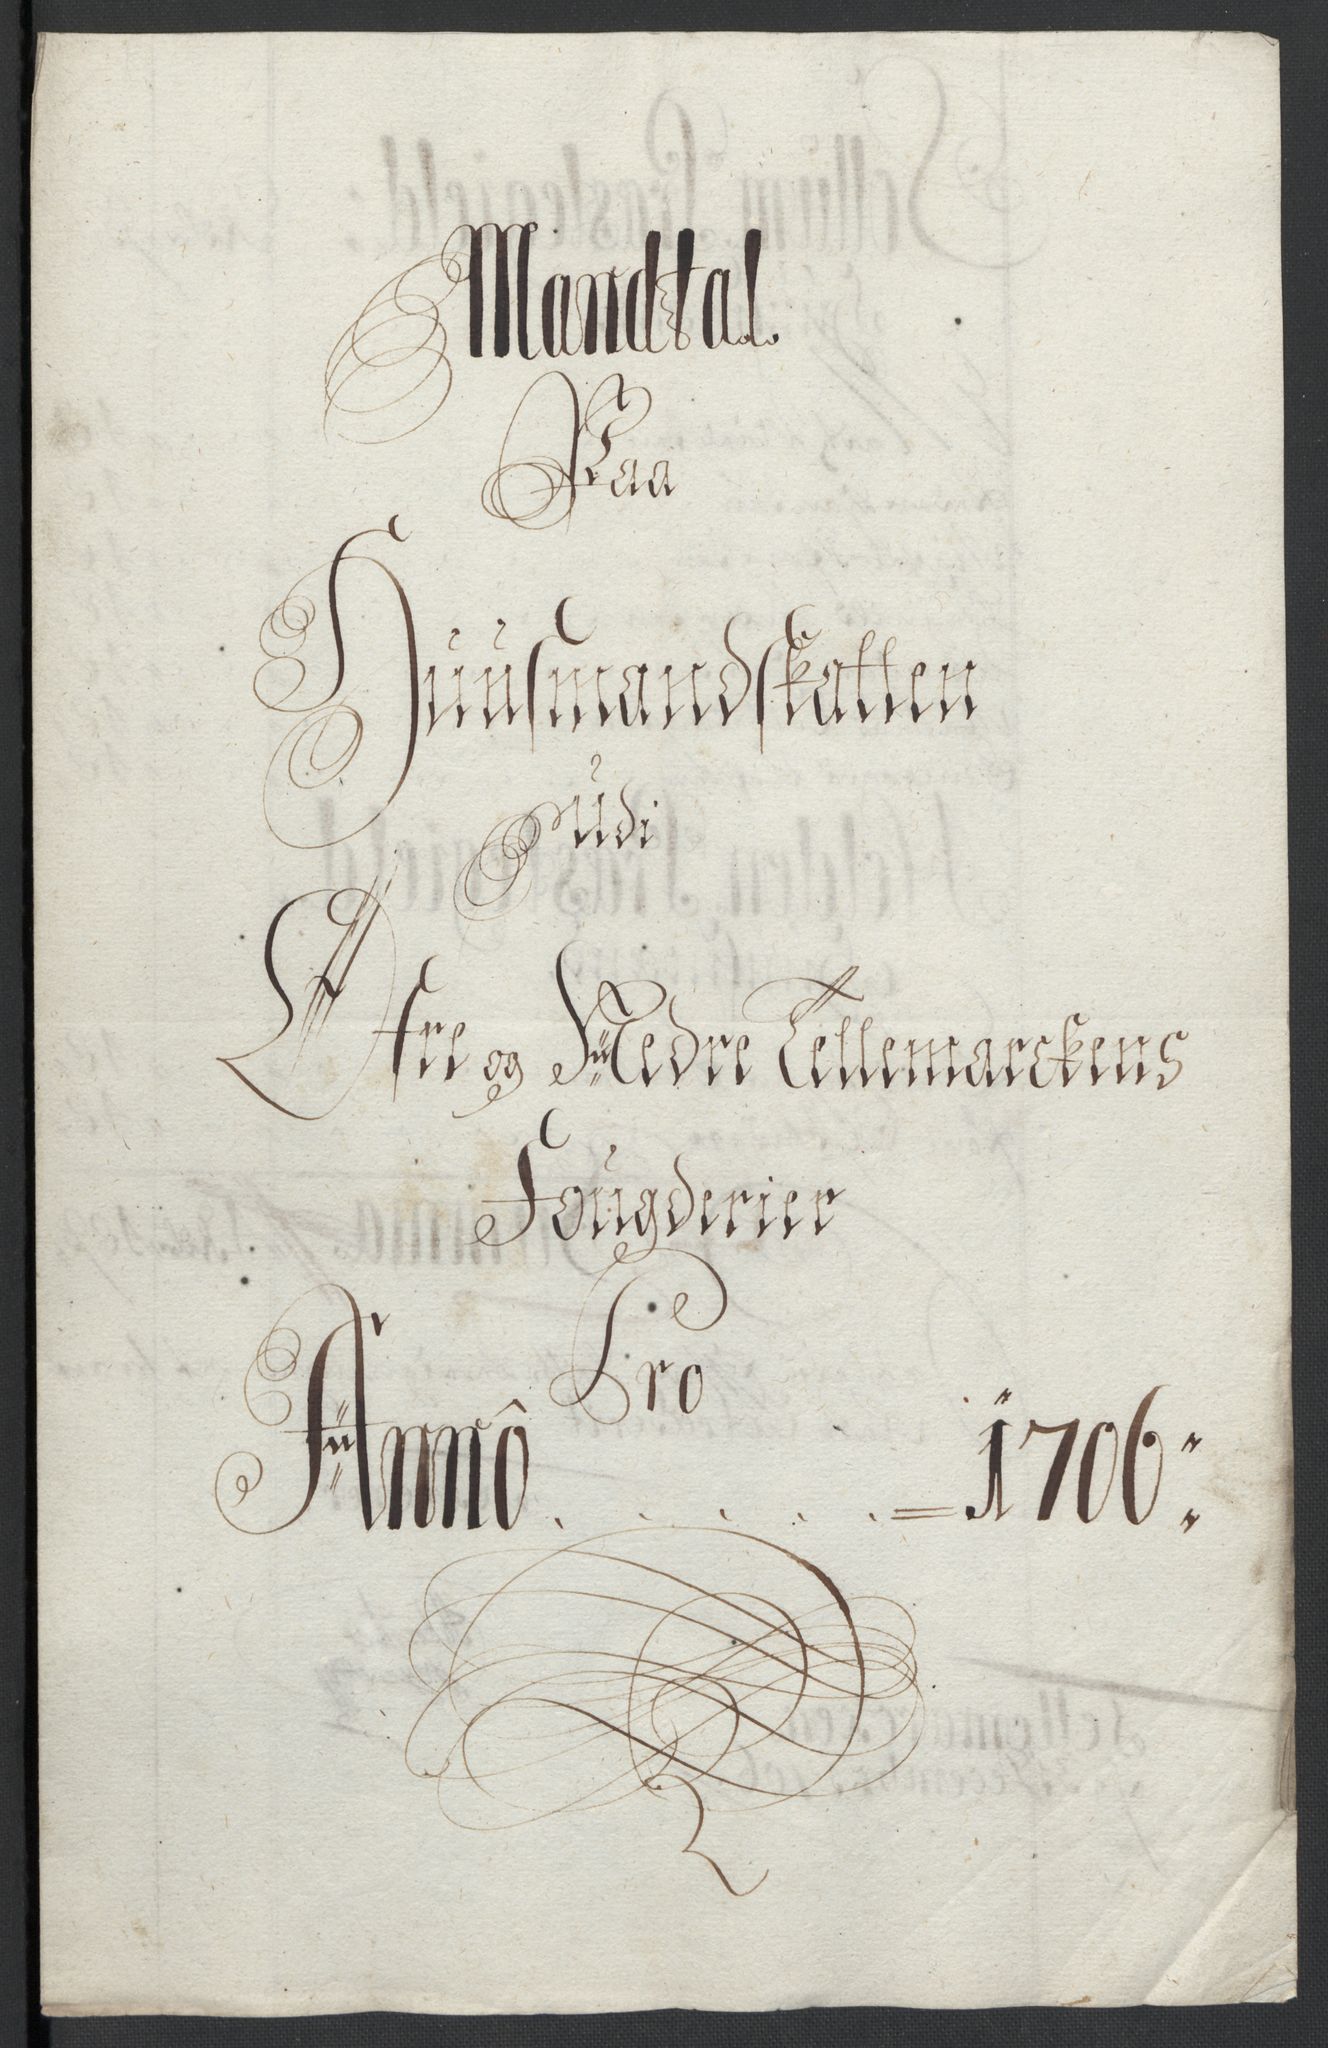 Mandtal
Paa
Huusmandskatten
udi
Øfre og Nedre Tellemarckens
Fougderier
Pro
Annô . . . . . = 1706: